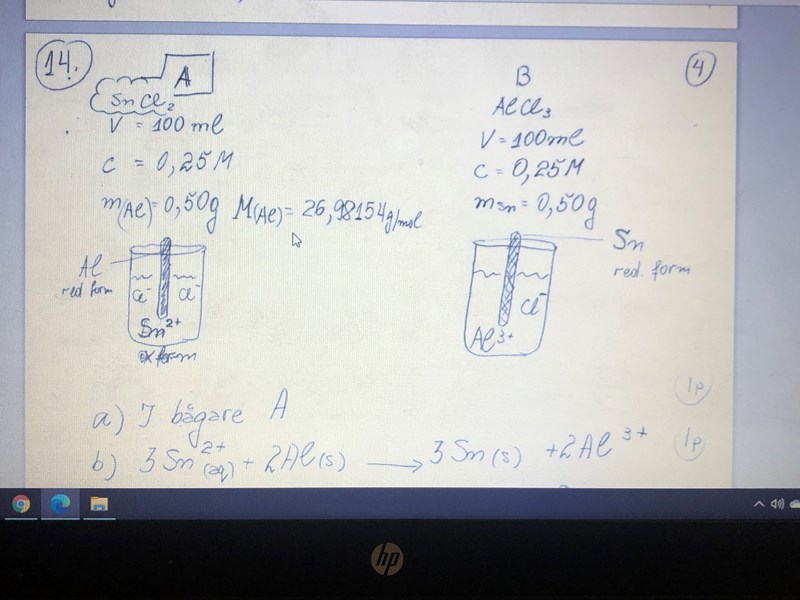 14.
A
SnCl₂
V = 100 ml
c = 0,25M
m(Al) = 0,50g M(Al) = 26,98154g/mol
Al
red form
Cl⁻ Cl⁻
Sn²⁺
ox form
4
B
AlCl₃
V = 100ml
c = 0,25M
mSn = 0,50g
Sn
red. form
Cl⁻
Al³⁺
a) I bägare A
1p
b) 3Sn²⁺(aq) + 2Al(s) → 3Sn(s) + 2Al³⁺
1p
hp